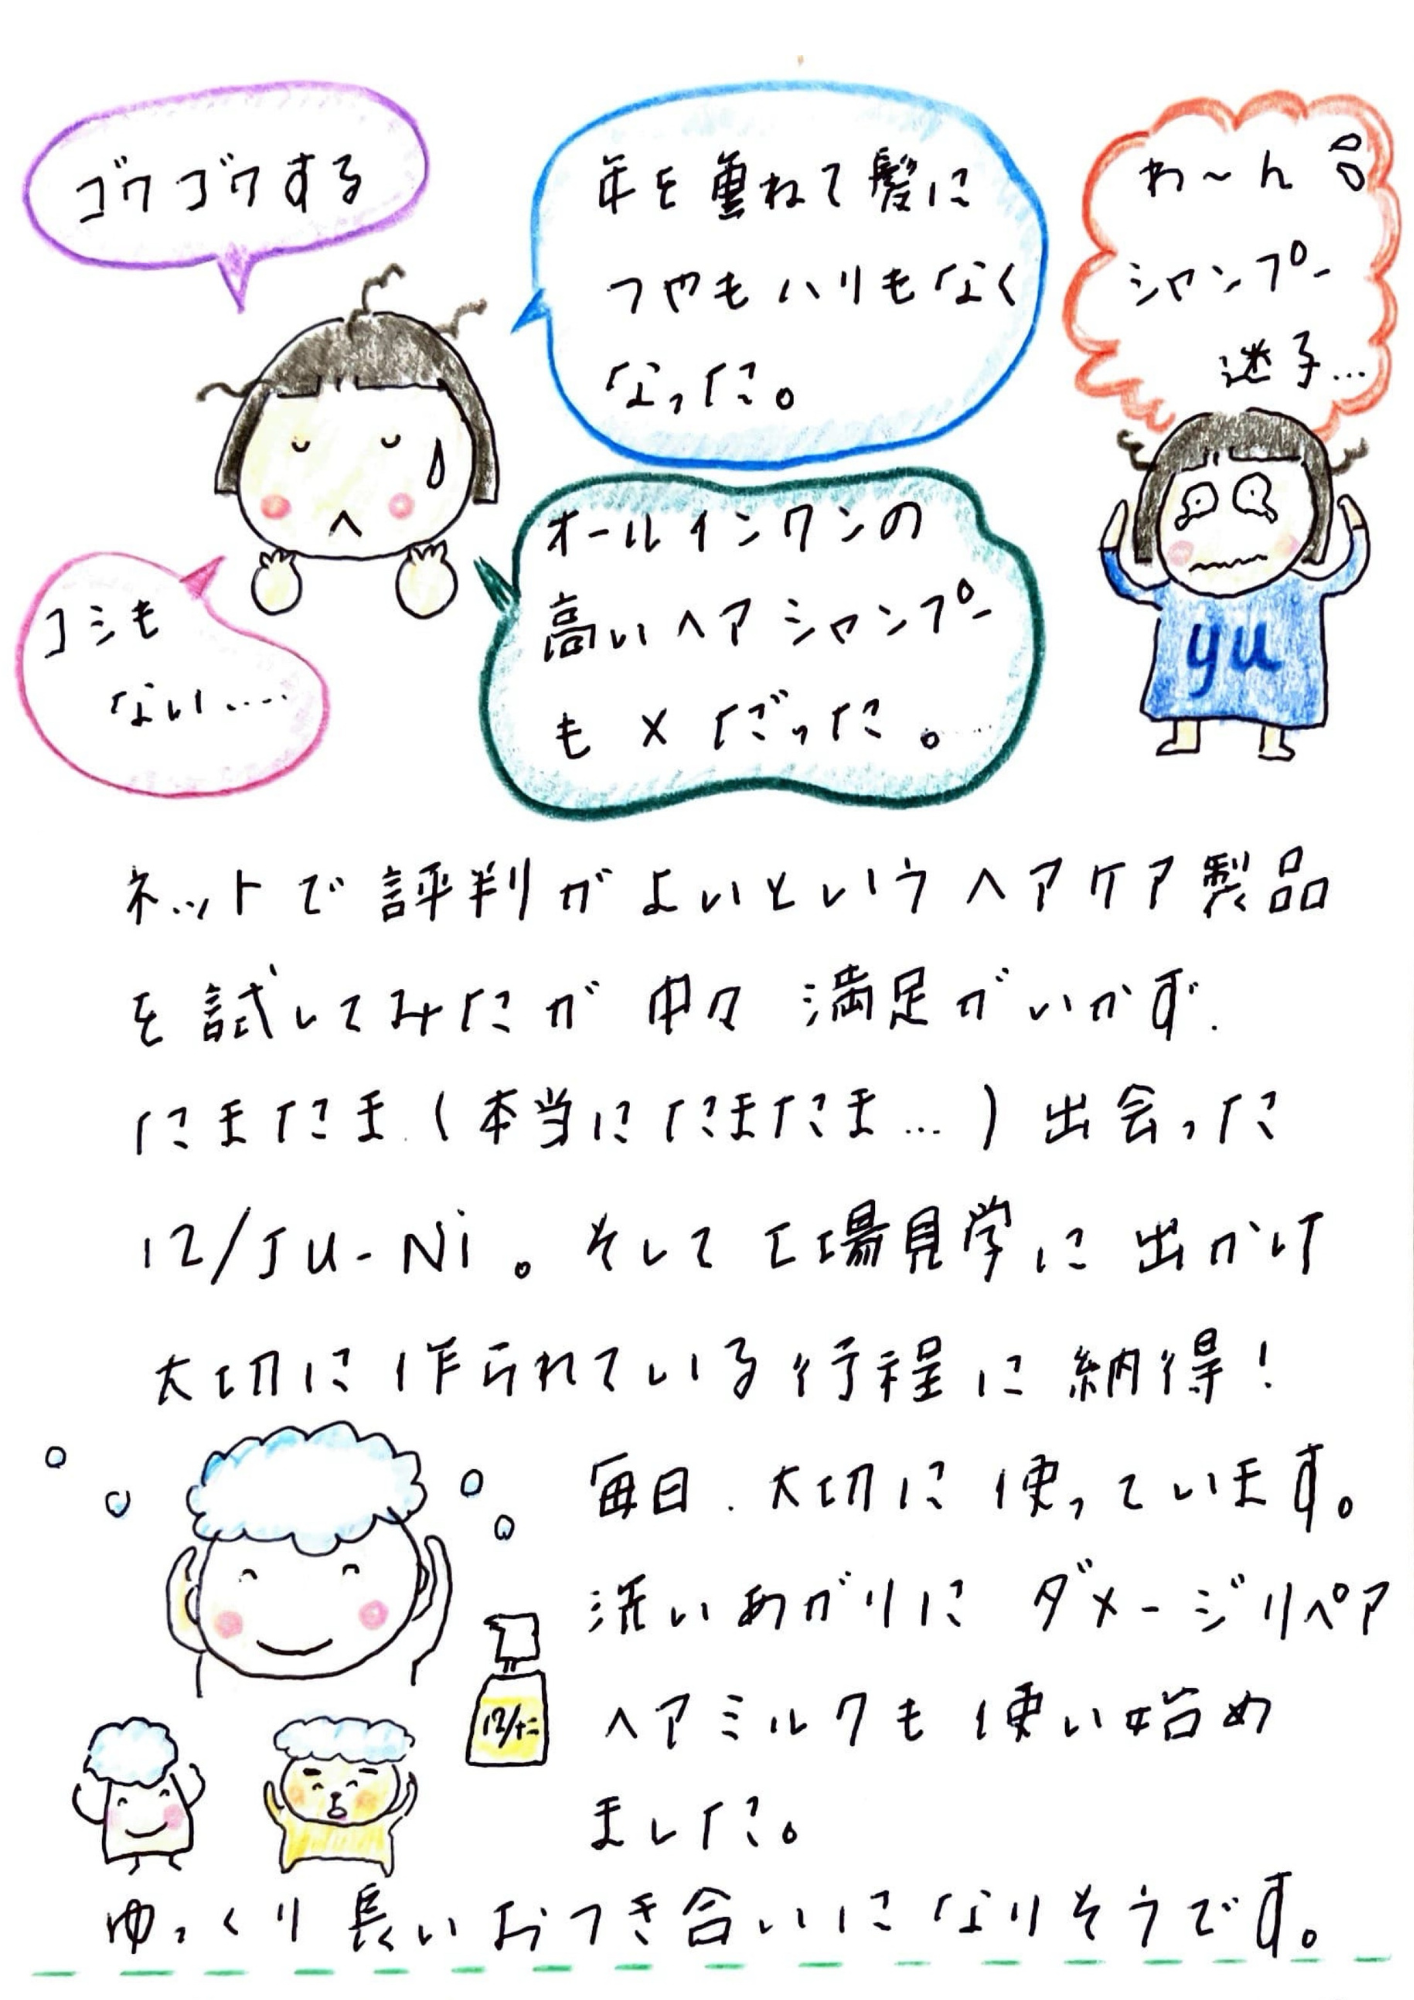 ゴワゴワする
年を重ねて髪に
つやもハリもなく
なった。
わ～ん
シャンプー
迷子…
オールインワンの
高いヘアシャンプー
も×だった。
コシも
ない……
yu
ネットで評判がよいというヘアケア製品
を試してみたが中々満足がいかず.
たまたま(本当にたまたま…)出会った
12/JU-Ni。そして工場見学に出かけ
大切に作られている行程に納得!
毎日.大切に使っています。
洗いあがりにダメージリペア
ヘアミルクも使い始め
ました。
12/十二
ゆっくり長いおつき合いになりそうです。